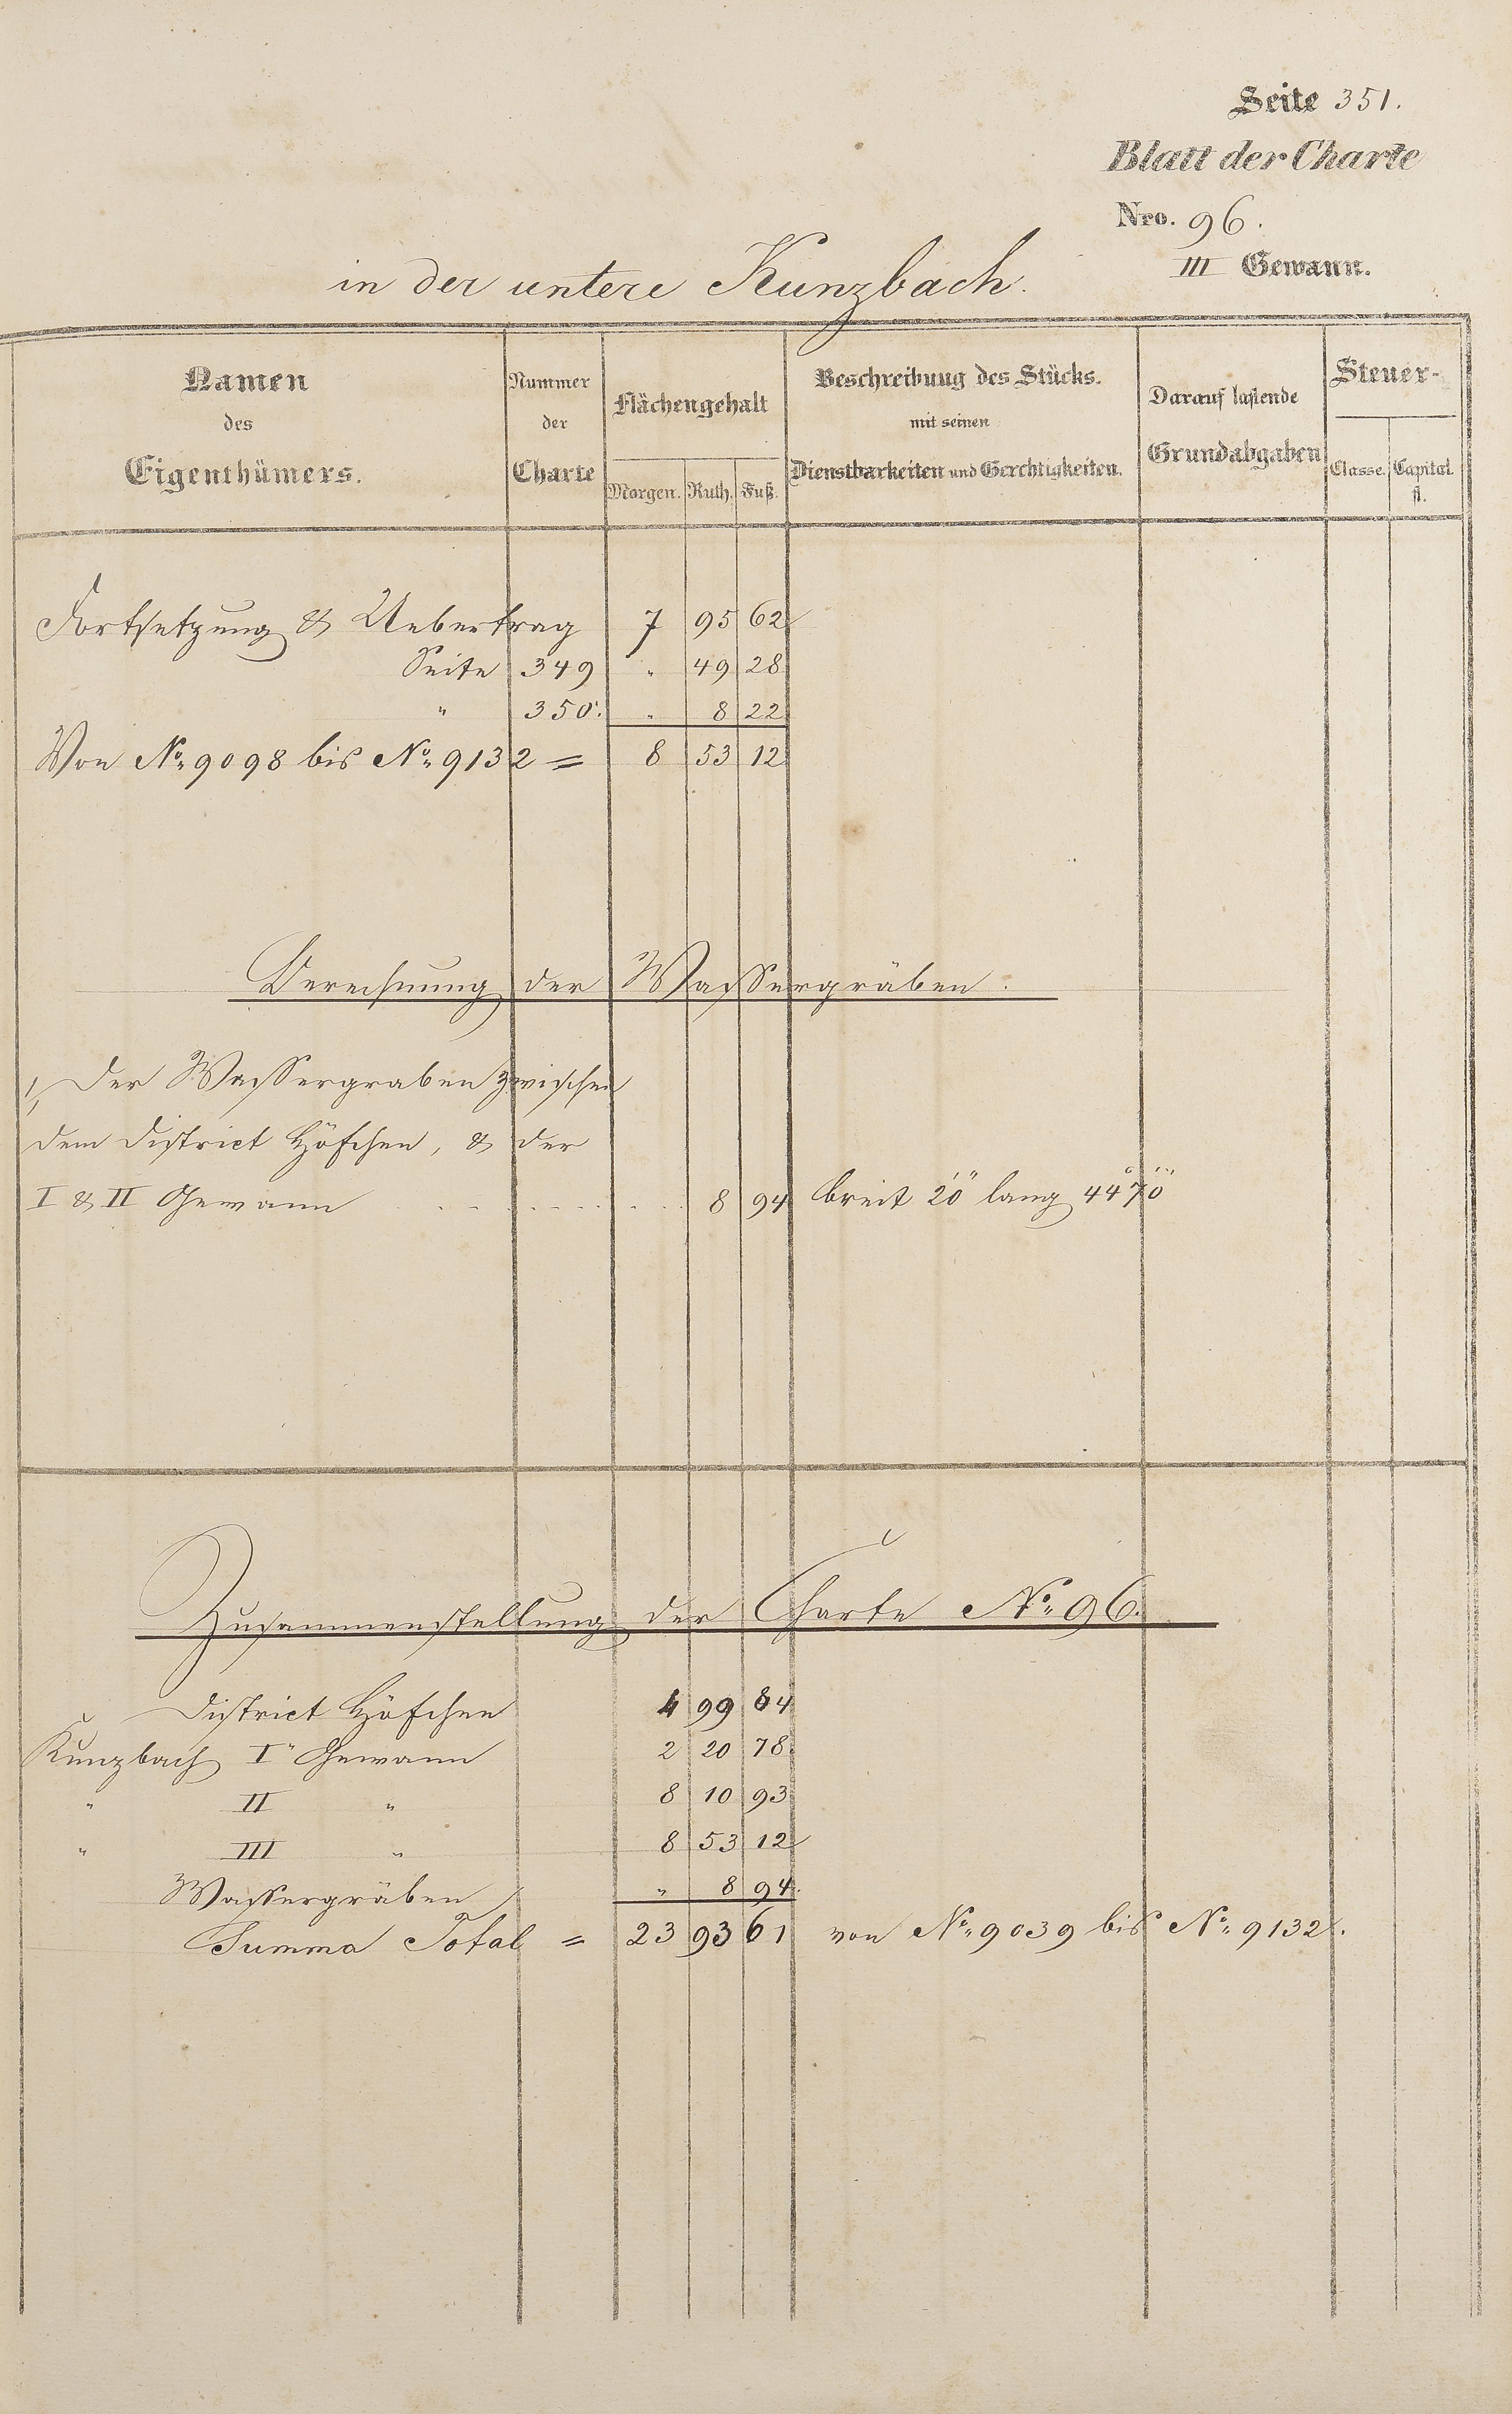 Seite 351.
Blatt der Charte
Nro. 96.
III Gewann.
in der untere Kunzbach.
Namen des Eigenthümers.
Nummer der Charte
Flächengehalt
Morgen. Ruth. Fuß.
Beschreibung des Stücks. mit seinen Dienstbarkeiten und Gerechtigkeiten.
Darauf lastende Grundabgaben
Steuer-
Classe. Capital. fl.
Fortsetzung & Uebertrag 7 95 62
Seite 349 " 49 28
" 350. " 8 22
Von No. 9098 bis No. 9132 = 8 53 12
Berechnung der Wassergräben.
1, Der Wassergraben zwischen
dem District Höfchen, & der
I & II Gewann . . . . . . . . . . 8 94 breit 20" lang 44° 7' 0"
Zusammenstellung der Charte No. 96.
District Höfchen 4 99 84
Kunzbach I" Gewann 2 20 78
" II " 8 10 93
" III " 8 53 12
Wassergräben " 8 94.
Summa Total = 23 93 61 von No. 9039 bis No. 9132.